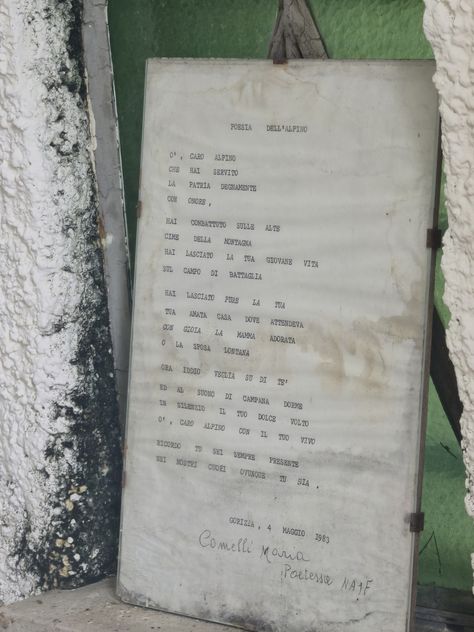 POESIA DELL'ALPINO
O', CARO ALPINO
CHE HAI SERVITO
LA PATRIA DEGNAMENTE
CON ONORE,
HAI COMBATTUTO SULLE ALTE
CIME DELLA MONTAGNA
HAI LASCIATO LA TUA GIOVANE VITA
SUL CAMPO DI BATTAGLIA
HAI LASCIATO PURE LA TUA
TUA AMATA CASA DOVE ATTENDEVA
CON GIOIA LA MAMMA ADORATA
O LA SPOSA LONTANA
ORA IDDIO VEGLIA SU DI TE'
ED AL SUONO DI CAMPANA DORME
IN SILENZIO IL TUO DOLCE VOLTO
O', CARO ALPINO CON IL TUO VIVO
RICORDO TU SEI SEMPRE PRESENTE
NEI NOSTRI CUORI OVUNQUE TU SIA.
GORIZIA, 4 MAGGIO 1983
Comelli Maria
Poetessa NAIF